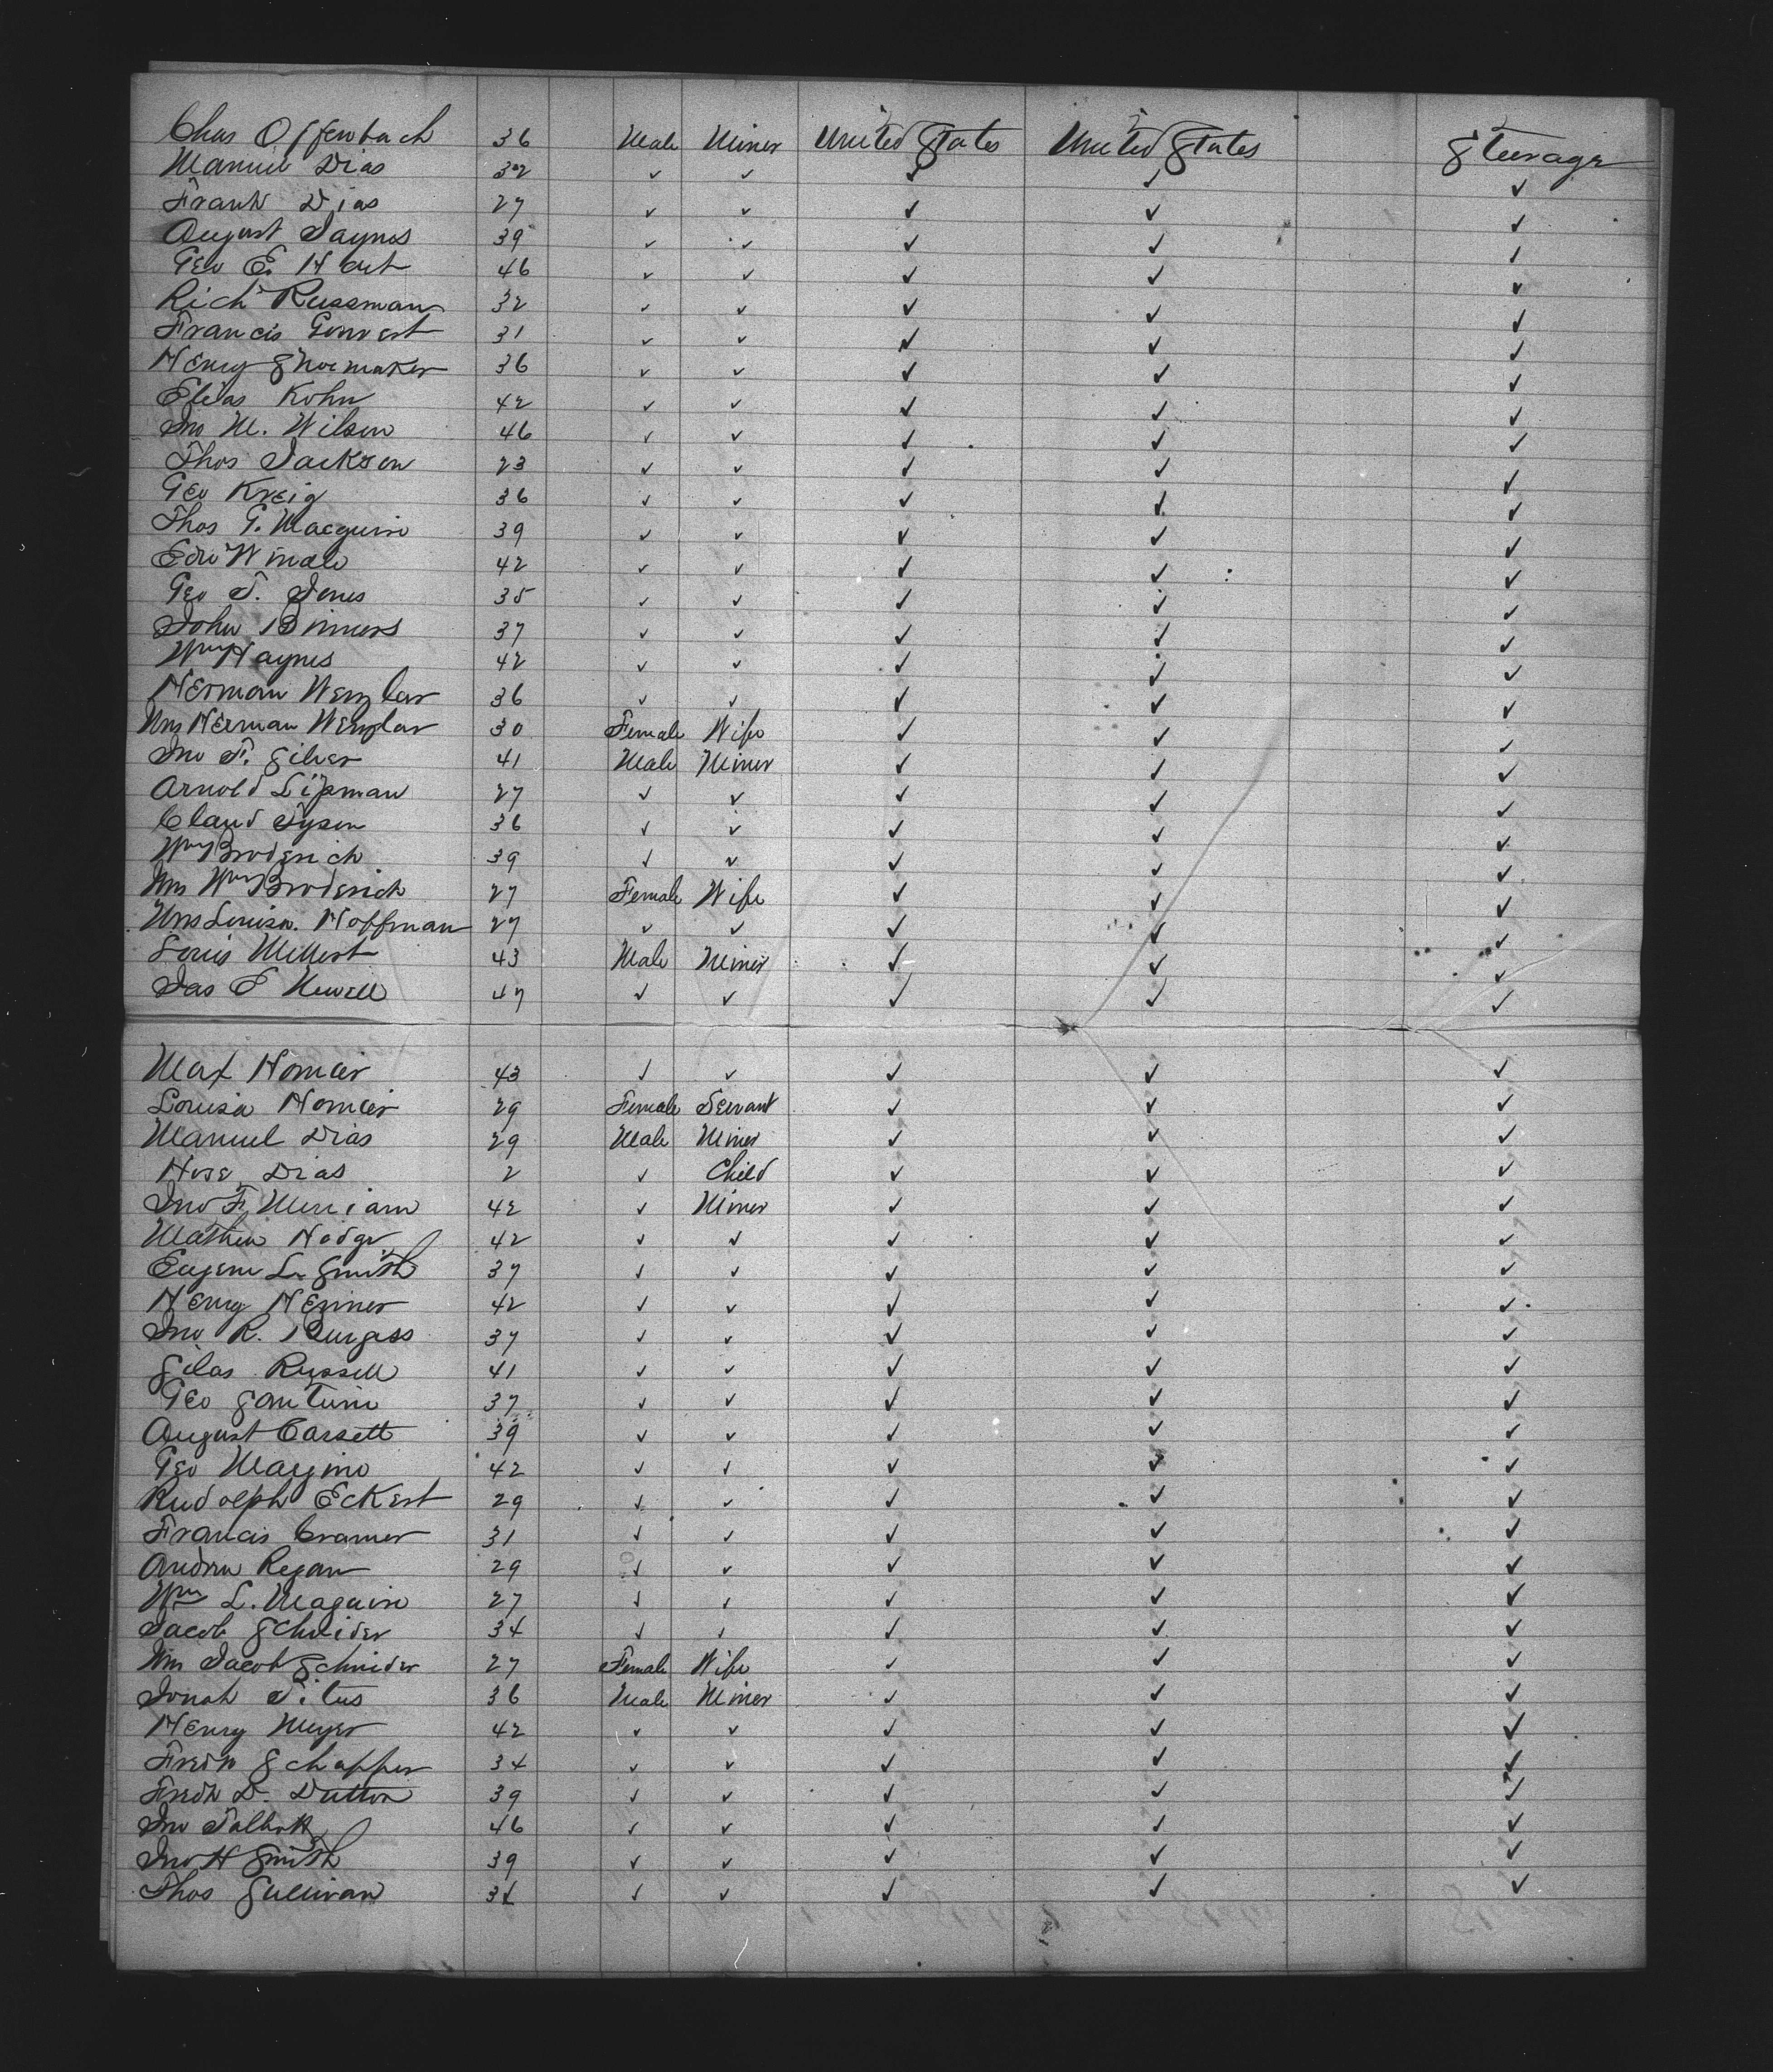 Chas Offenbach 36 Male Miner United States United States Steerage
Manuel Dias 32 ✓ ✓ ✓ ✓ ✓
Frank Dias 27 ✓ ✓ ✓ ✓ ✓
August Jaynes 39 ✓ ✓ ✓ ✓ ✓
Geo E. Hart 46 ✓ ✓ ✓ ✓ ✓
Rich Russman 32 ✓ ✓ ✓ ✓ ✓
Francis 31 ✓ ✓ ✓ ✓ ✓
Henry Shoemaker 36 ✓ ✓ ✓ ✓ ✓
Elias Kohn 42 ✓ ✓ ✓ ✓ ✓
Jno M. Wilson 46 ✓ ✓ ✓ ✓ ✓
Thos Jackson 23 ✓ ✓ ✓ ✓ ✓
Geo Kreig 36 ✓ ✓ ✓ ✓ ✓
Thos G. Macguire 39 ✓ ✓ ✓ ✓ ✓
Edw 42 ✓ ✓ ✓ ✓ ✓
Geo T. Jones 35 ✓ ✓ ✓ ✓ ✓
John Binners 37 ✓ ✓ ✓ ✓ ✓
Wm Haynes 42 ✓ ✓ ✓ ✓ ✓
Herman Wenzlar 36 ✓ ✓ ✓ ✓ ✓
Mrs Herman Wenzlar 30 Female Wife ✓ ✓ ✓
Jno F. Silver 41 Male Miner ✓ ✓ ✓
Arnold Lipman 27 ✓ ✓ ✓ ✓ ✓
Claud Tyson 36 ✓ ✓ ✓ ✓ ✓
Wm Broderick 39 ✓ ✓ ✓ ✓ ✓
Mrs Wm Broderick 27 Female Wife ✓ ✓ ✓
Mrs Louisa Hoffman 27 ✓ ✓ ✓ ✓ ✓
Louis Millert 43 Male Miner ✓ ✓ ✓
Jas E Newell 47 ✓ ✓ ✓ ✓ ✓
Max Homeier 43 ✓ ✓ ✓ ✓ ✓
Louisa Homeier 29 Female Servant ✓ ✓ ✓
Manuel Dias 29 Male Miner ✓ ✓ ✓
Hose Dias 2 ✓ Child ✓ ✓ ✓
Jno F. Merriam 42 ✓ Miner ✓ ✓ ✓
Mathew Hodge 42 ✓ ✓ ✓ ✓ ✓
Eugene L. Smith 37 ✓ ✓ ✓ ✓ ✓
Henry 42 ✓ ✓ ✓ ✓ ✓
Jno R. Burgess 37 ✓ ✓ ✓ ✓ ✓
Silas Russell 41 ✓ ✓ ✓ ✓ ✓
Geo 37 ✓ ✓ ✓ ✓ ✓
August Carsett 39 ✓ ✓ ✓ ✓ ✓
Geo 42 ✓ ✓ ✓ ✓ ✓
Rudolph Eckert 29 ✓ ✓ ✓ ✓ ✓
Francis Cramer 31 ✓ ✓ ✓ ✓ ✓
Andrew Regan 29 ✓ ✓ ✓ ✓ ✓
Wm L. Maguire 27 ✓ ✓ ✓ ✓ ✓
Jacob Schneider 34 ✓ ✓ ✓ ✓ ✓
Mrs Jacob Schneider 27 Female Wife ✓ ✓ ✓
Jonah Titus 36 Male Miner ✓ ✓ ✓
Henry Meyer 42 ✓ ✓ ✓ ✓ ✓
Fredk Schapper 34 ✓ ✓ ✓ ✓ ✓
Fredk D. Dutton 39 ✓ ✓ ✓ ✓ ✓
Jno Talbott 46 ✓ ✓ ✓ ✓ ✓
Jno H Smith 39 ✓ ✓ ✓ ✓ ✓
Thos Sullivan 34 ✓ ✓ ✓ ✓ ✓